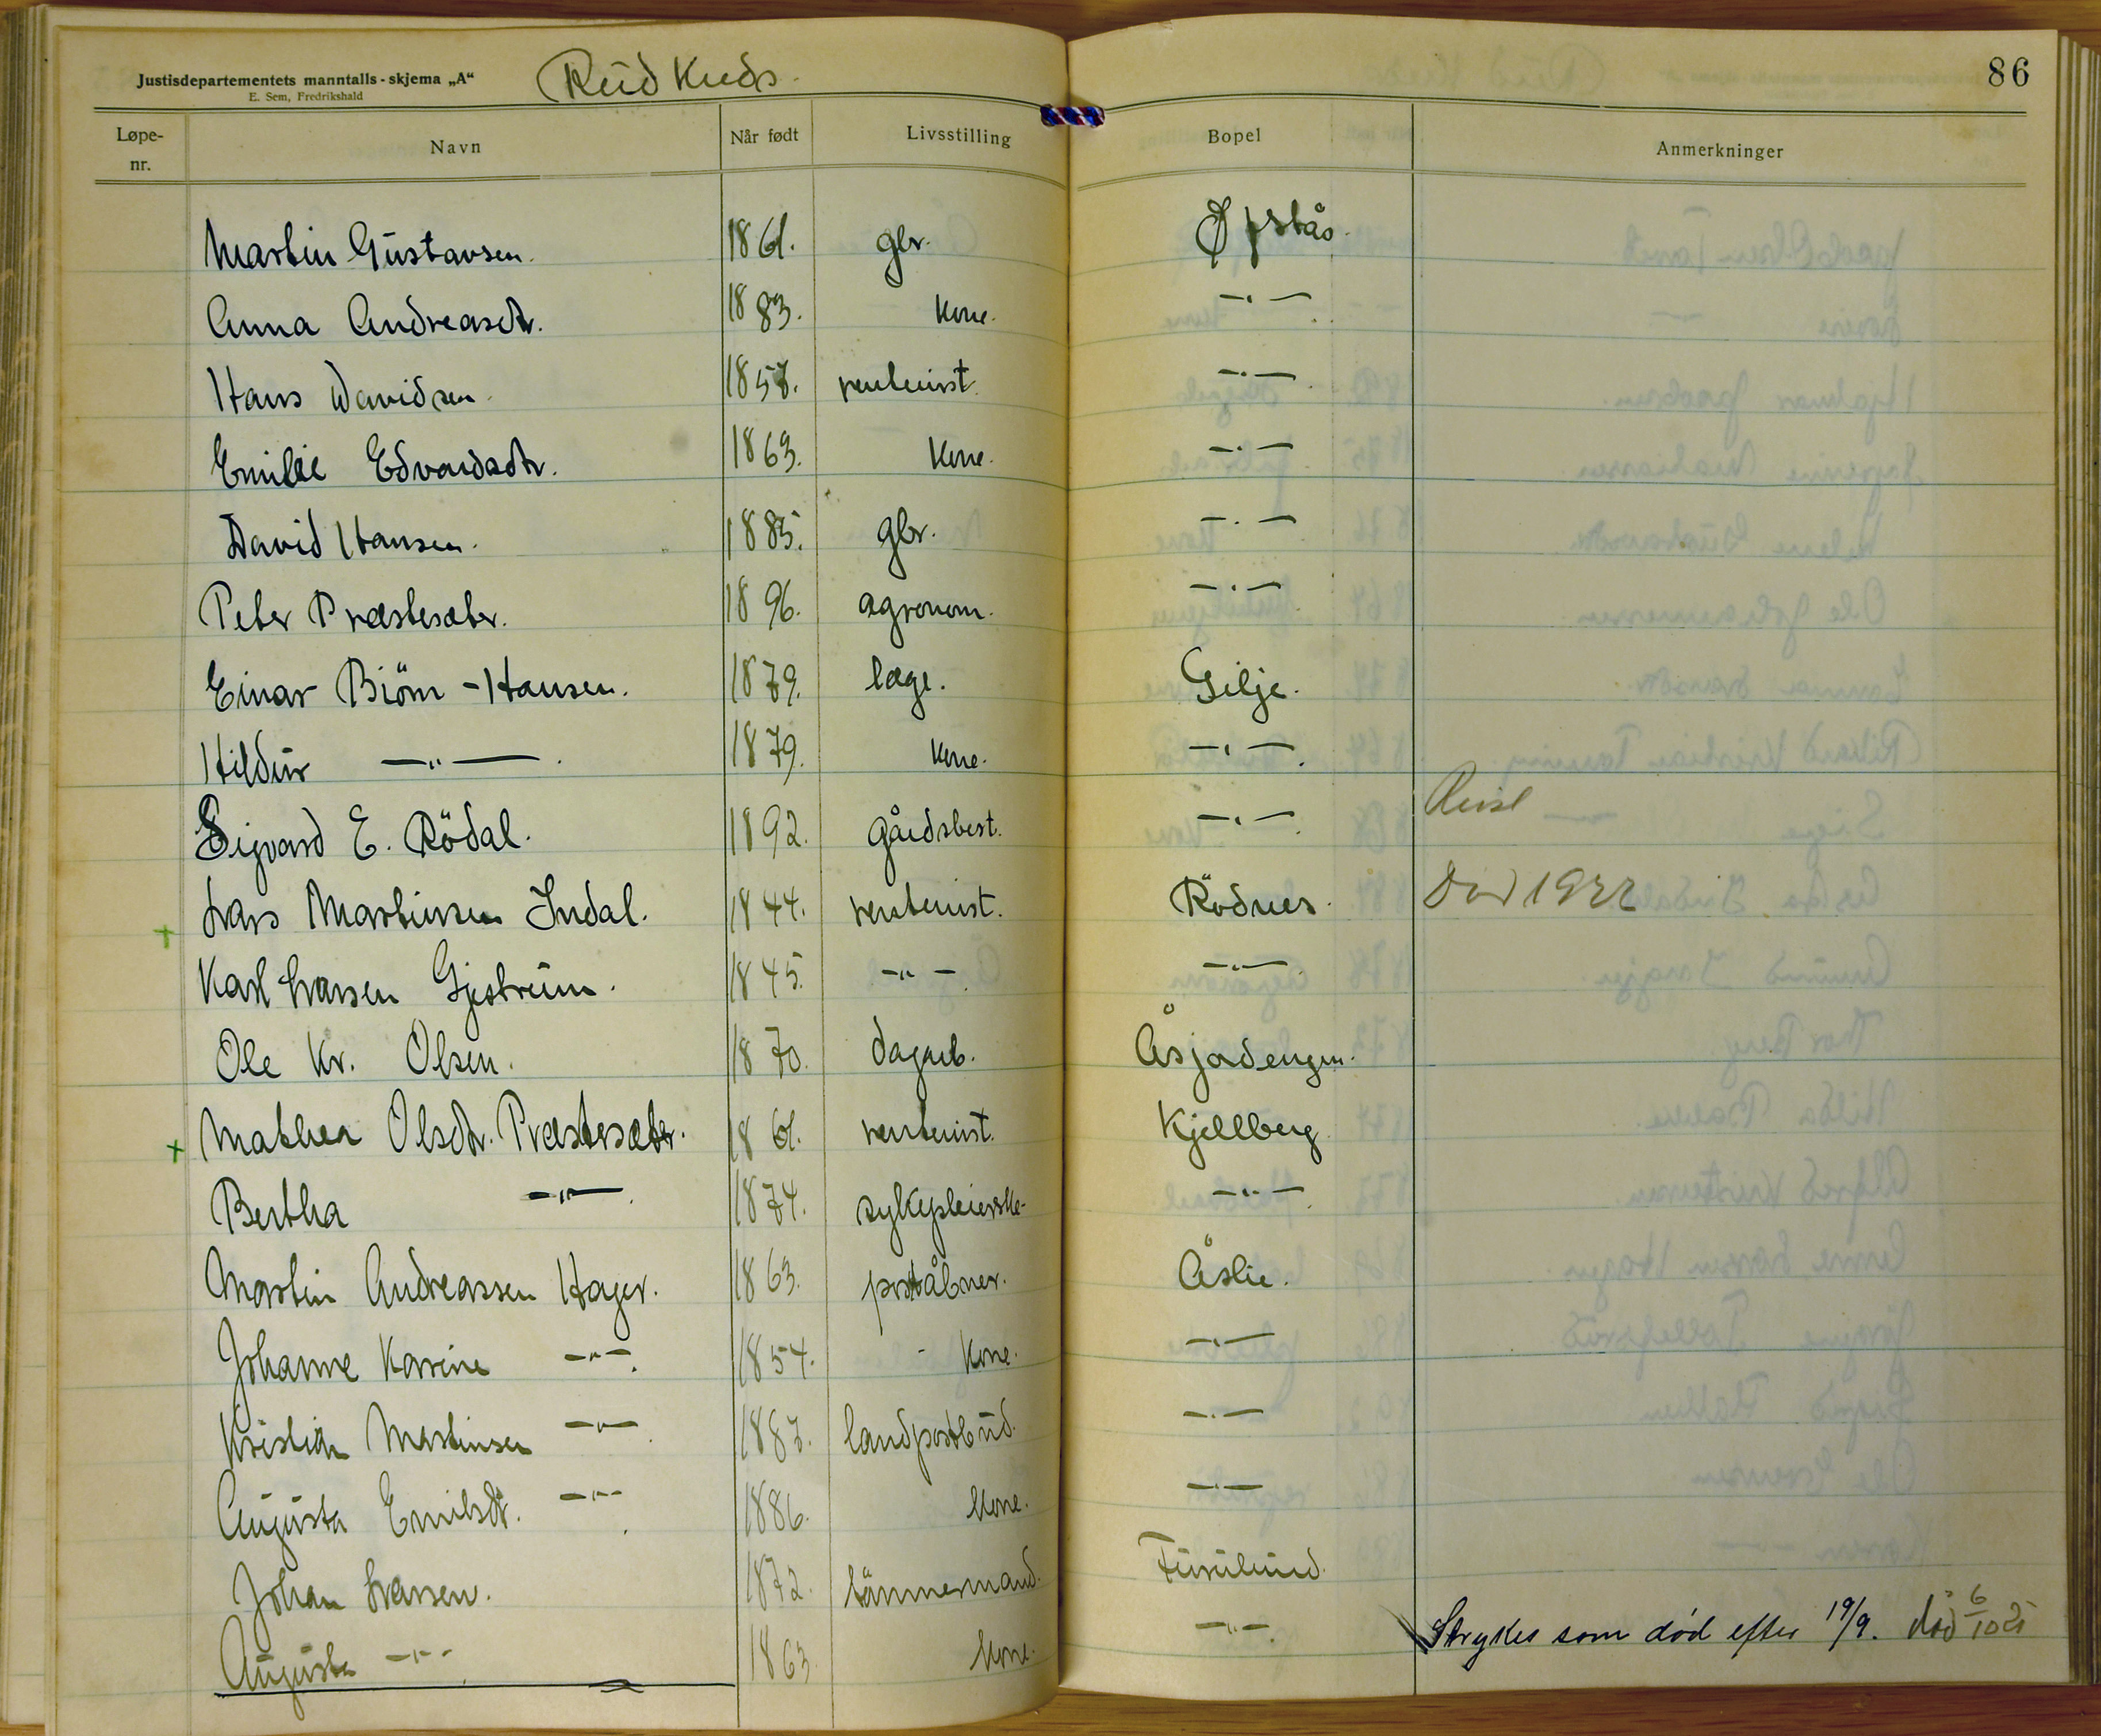 Justisdepartementets manntalls-skjema „A“
E. Sem, Fredrikshald
Rüd Kreds.
86
Løpe-nr. Navn Når født Livsstilling Bopel Anmerkninger
Martin Güstavsen. 1861. gbr. Øpstås.
Anna Andreasdtr. 1883. Kone. —"—
Hans Davidsen. 1857. rentenist. —"—
Emilie Edvardsdtr. 1863. Kone. —"—
David Hansen. 1885. gbr. —"—
Peter Præstesæter. 1896. agronom. —"—
Einar Biörn-Hansen. 1879. læge. Gilje.
Hildür —"—. 1879. Kone. —"—.
Sigvard E. Rödal. 1892. gårdsbest. —"—. Reist
+ Lars Martinsen Indal. 1844. rentenist. Rödnes. Död 1922
Karl Larsen Gjestrüm. 1845. —"—. —"—.
Ole Kr. Olsen. 1870. dagarb. Åsjordengen.
+ Mathea Olsdtr. Præstesæter. 1861. rentenist. Kjellberg
Bertha —"—. 1874. sykepleierske. —"—.
Martin Andreassen Hager. 1863. poståbner. Åslie.
Johanne Karine —"—. 1854. Kone. —"—
Kristian Martinsen —"—. 1887. landpostbüd. —"—
Augüsta Emilsdtr. —"—. 1886. Kone. —"—
Johan Larsen. 1872. tömmermand. Fürülünd.
Augüsta —"—. 1863. Kone. —"—. Strykes som død efter 19/9. död 6/10 25